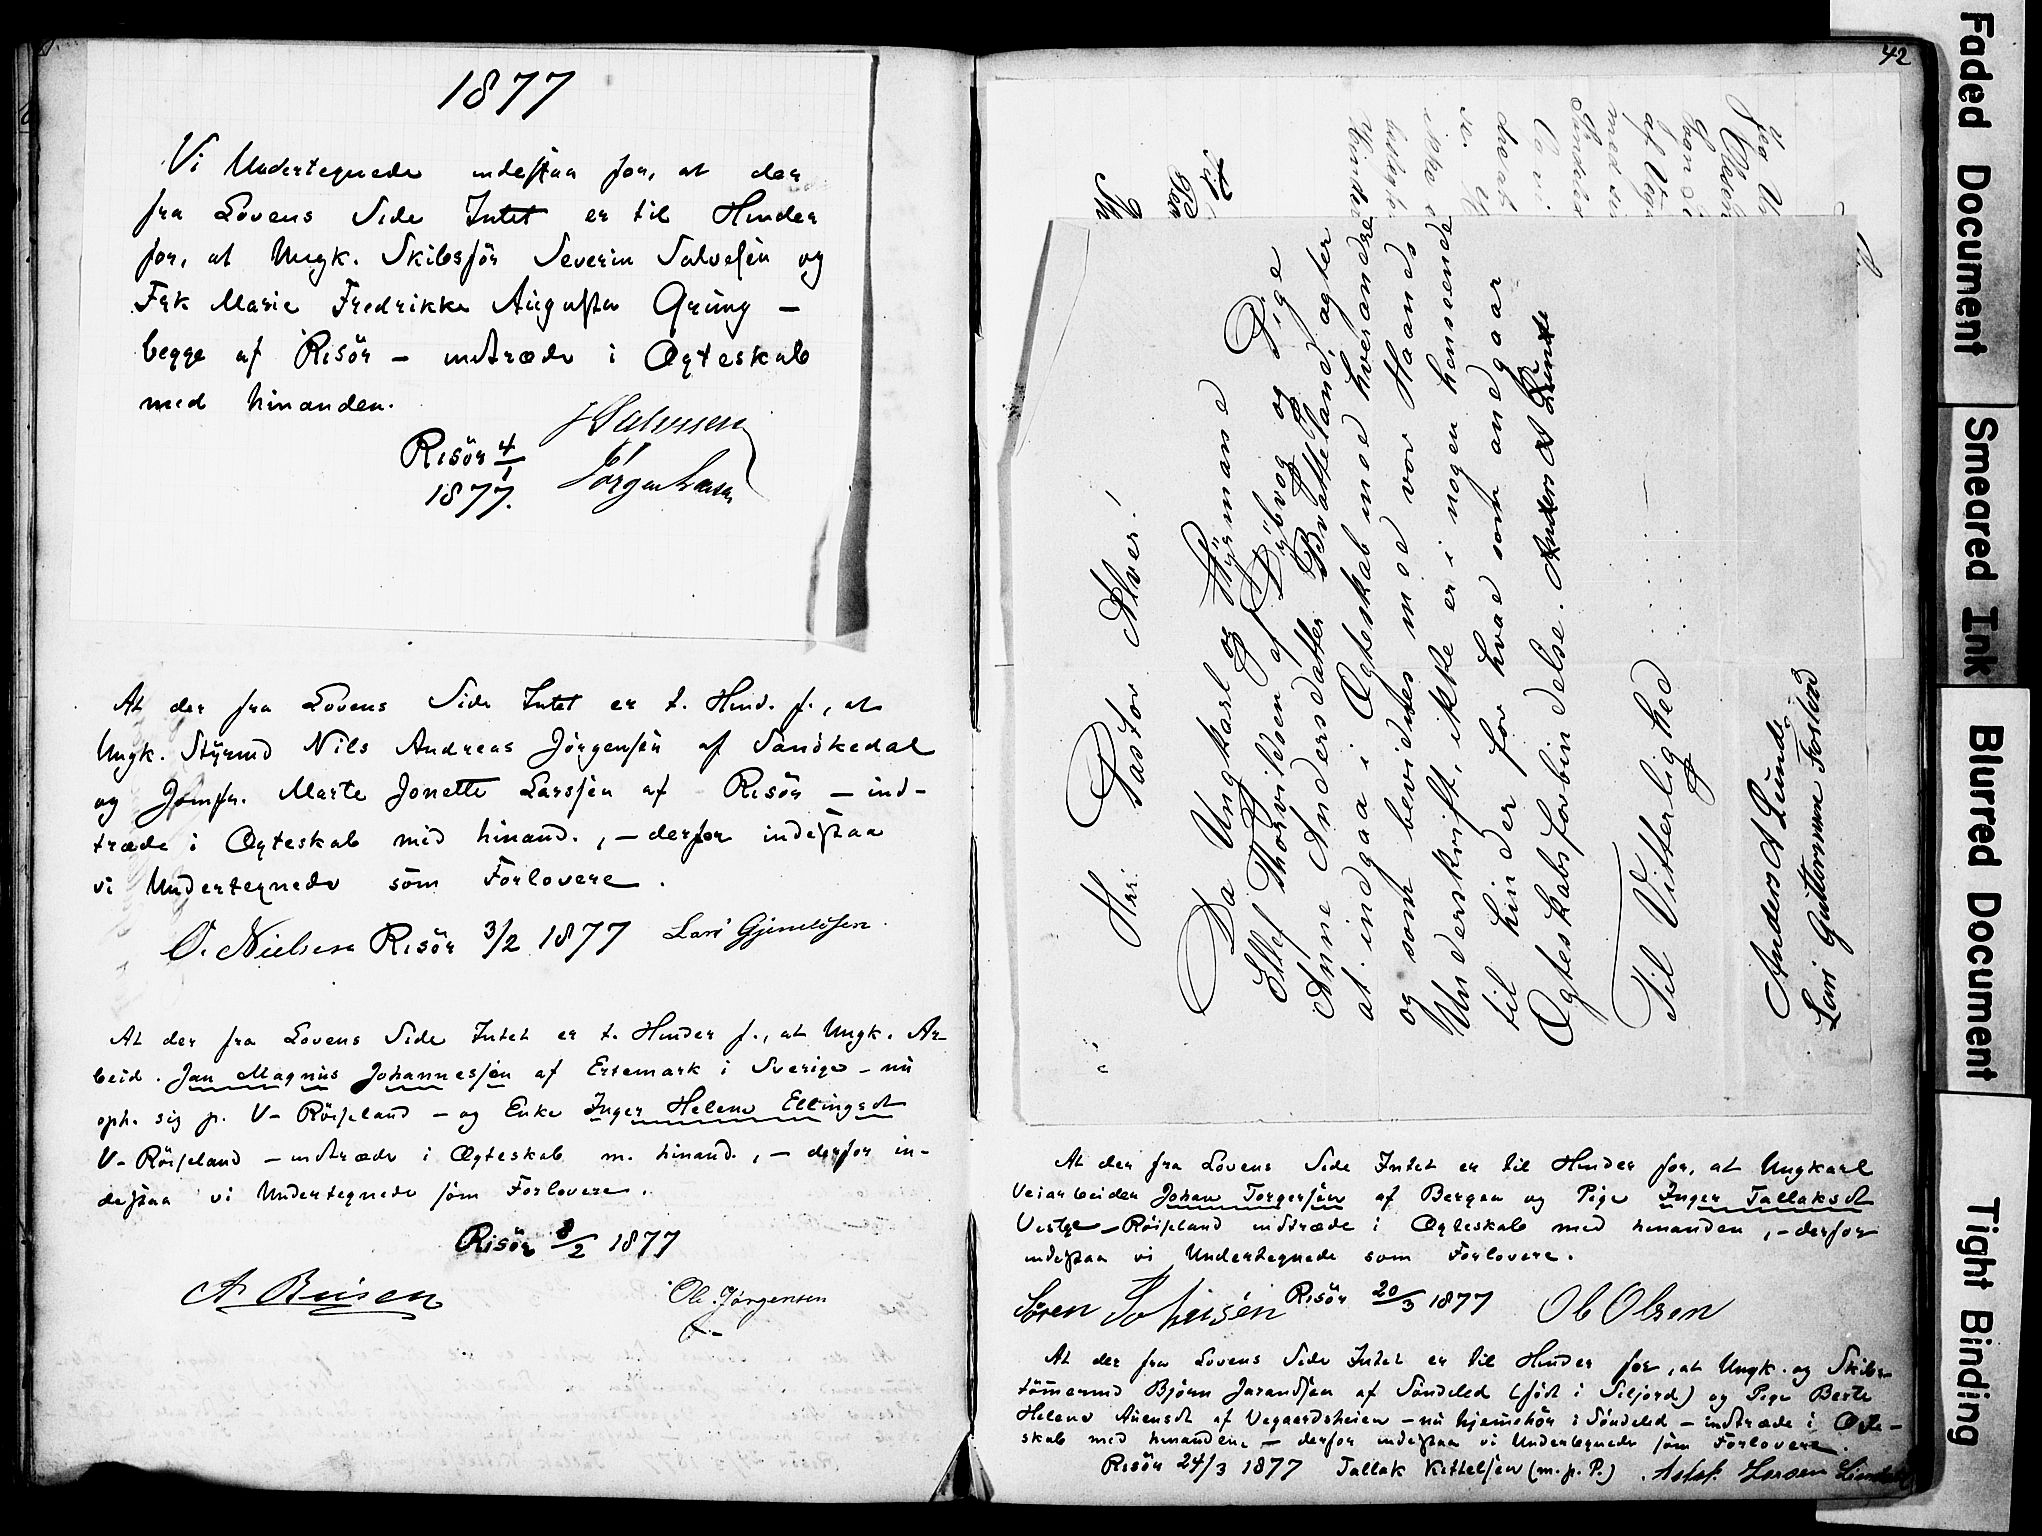 1877
Vi Undertegnede indestaa for, at der
fra Lovens Side Intet er til Hinder
for, at Ungk. Skibsför Severin Salvesen og
Frk Marie Fredrikke Augusta Grüng –
begge af Risör – indtræde i Ægteskab
med hinanden.
Risör 4/1
1877.
HSalvesen
Jörgen Larsen
At der fra Lovens Side Intet er t. Hind. f., at
Ungk. Styrmd Nils Andreas Jörgensen af Sanökedal
og Jomfr. Marte Jonette Larssen af Risör – ind-
træde i Ægteskab med hinand., – derfor indestaa
vi Undertegnede som Forlovere.
O. Nielsen Risör 3/2 1877 Lars Gjerulfsen.
At der fra Lovens Side Intet er t. Hinder f., at Ungk. Ar-
beid. Jan Magnus Johannesen af Ertemark i Sverige – nu
oph. sig p. V-Röisland – og Enke Inger Helene Ellingsdt
V-Röisland – indtræde i Ægteskab m. hinand., – derfor in-
destaa vi Undertegnede som Forlovere.
Risör 8/2 1877
A Busen
Ole Jørgensen
42
Hr. Pastor Alver!
Da Ungkarl og Styrmand
Ellef Thorvildsen af Dybvog og Pige
Anne Andersdatter Brattland, agter
at indgaa i Ægteskab med hverandre
og som bevidnes med vor Haands
Underskrift, ikke er i nogen henseende
til hinder for hvad som angaar
Ægteskabsforbindelse. Anders A Lunde
Til Vitterlighed
Anders A Lunde
Lars Guttormsen Fosland
At der fra Lovens Side Intet er til Hinder for, at Ungkarl
Veiarbeider Johan Torgersen af Bergen og Pige Inger Tallaksdt
Vestre-Röisland indtræde i Ægteskab med hinanden, – derfor
indestaa vi Undertegnede som Forlovere.
Sören Risör 20/3 1877 Ole Olsen
At der fra Lovens Side Intet er til Hinder for, at Ungk. og Skibs-
tömermd Björn Jarandsen af Söndeled (född i Siljord) og Pige Berte
Helene Auensdt af Vegaardsheien – nu hjemehör i Söndeled – indtræde i Ægte-
skab med hinanden – derfor indestaa vi Undertegnede som Forlovere.
Risör 24/3 1877 Tallak Kittelsen (m. p. P.)
Faded Document
Smeared Ink
Blurred Document
Tight Binding